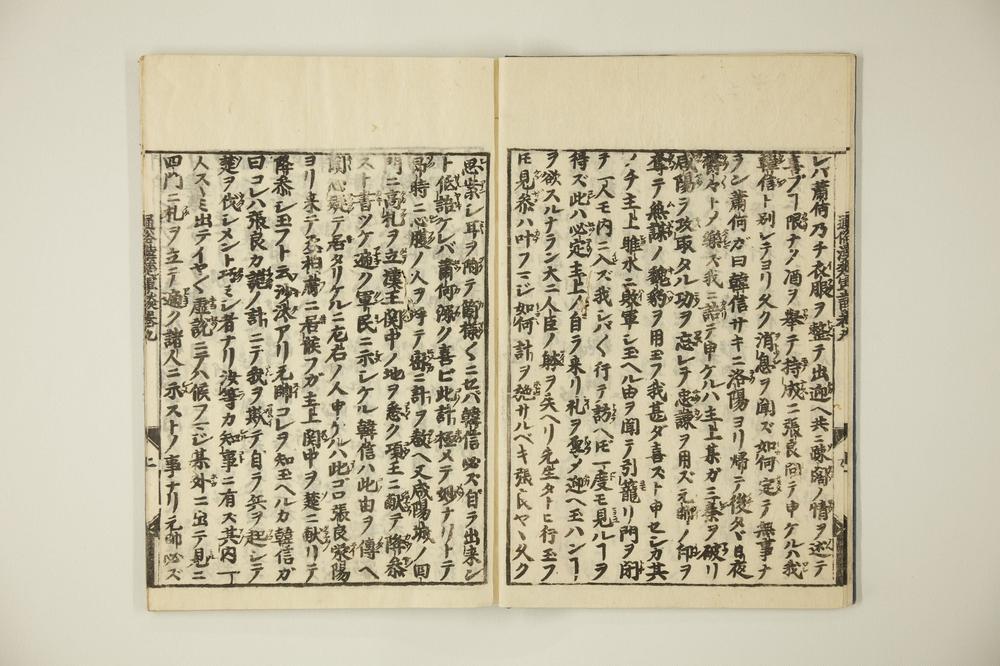 レバ蕭何乃チ衣服ヲ整テ出迎ヘ共ニ疎濶ノ情ヲ述テ
喜ブヿ限ナク酒ヲ擧テ持成ニ張良問テ申ケルハ我
韓信ト別レテヨリ久ク消息ヲ聞ズ如何定テ無事ナ
ラン蕭何ガ曰韓信サキニ洛陽ヨリ帰テ後タヾ日夜
欝々トノ樂ズ我ニ語テ申ケルハ主上某ガ三秦ヲ破リ
咸陽ヲ攻取タル功ヲ忘レテ忠諫ヲ用ズ元帥ノ印ヲ
奪テ無謀ノ魏豹ヲ用玉フ我甚ダ喜ズト申セシカ其
ノチ主上睢水ニ敗軍シ玉ヘル由ヲ聞テ引籠リ門ヲ閉
チ一人モ内ニ入ズ我シバ〱行テ訪ヘ𪜈一度モ見ルヿヲ
得ズ此ハ必定主上ノ自ラ来リ礼ヲ厚メ迎ヘ玉ハンヿ
ヲ欲スルナラン大ニ人臣ノ躰ヲ失ヘリ先生タトヒ行玉フ
𪜈見参ハ叶フマジ如何計ヲ施サルベキ張良ヤヽ久ク
思案シ耳ヲ附テ箇様〱ニセバ韓信必ズ自ラ出来ン
ト低語ケレバ蕭何深ク喜ビ此計極メテ妙ナリトテ
即時ニ心腹ノ人ヲ呼テ密ニ計ヲ教ヘ又咸陽城ノ四
門ニ高札ヲ立漢王関中ノ地ヲ悉ク項王ニ献テ降参
スト書ツケ遍ク軍民ニ示シケル韓信ハ此由ヲ傳ヘ
聞心疑テ居タリケルニ左右ノ人申ケルハ此ゴロ張良滎陽
ヨリ来テ丞相蕭ニ居候フガ主上関中ヲ楚ニ献リテ
降参シ玉フト云沙汰アリ元帥コレヲ知玉ヘルカ韓信ガ
曰コレハ張良カ謀ノ計ニテ我ヲ欺テ自ラ兵ヲ起シテ
楚ヲ伐シメント巧ミシ者ナリ汝等カ知事ニ有ズ其内一
人スヽミ出テイヤ〱虚説ニテハ候フマジ某外ニ出テ見ニ
四門ニ札ヲ立テ遍ノ諸人ニ示ストノ事ナリ元帥必ズ